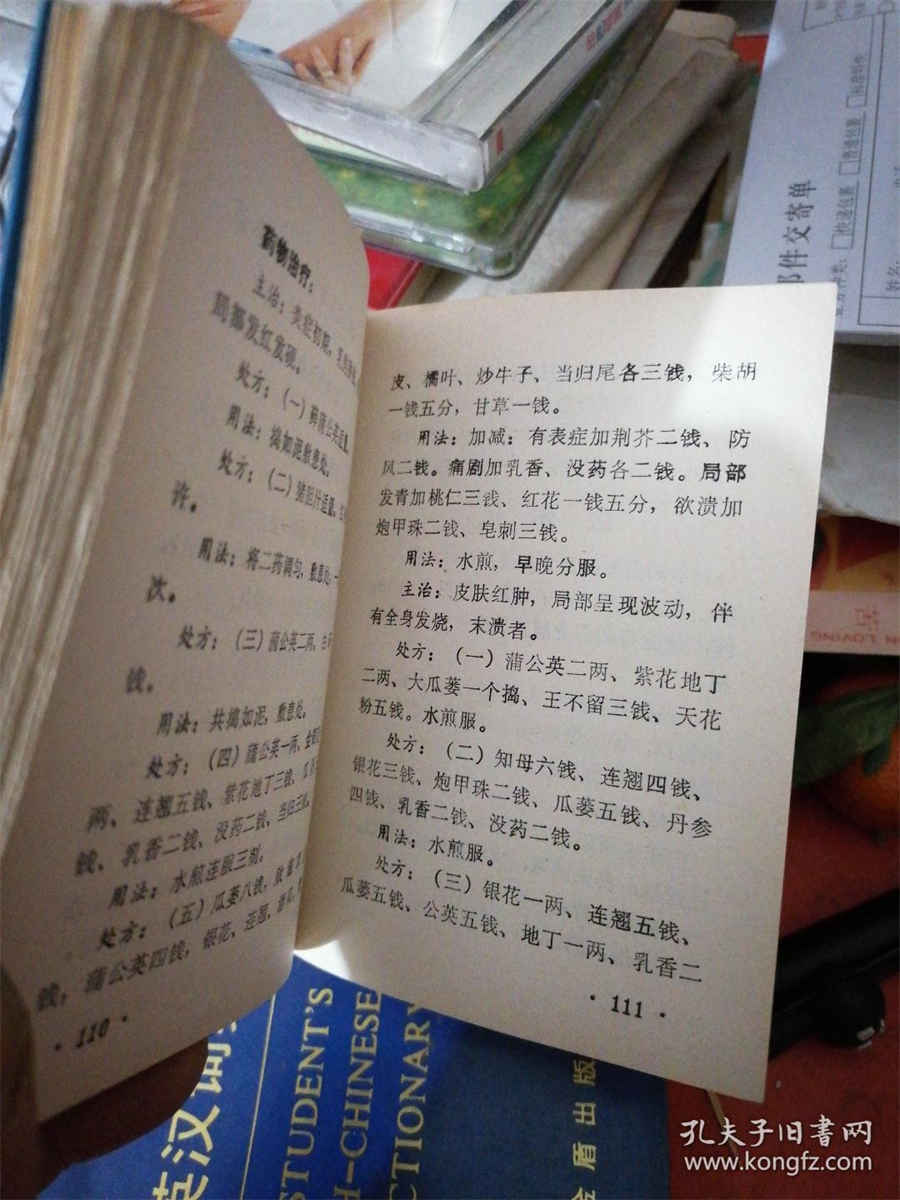 药物治疗：
主治：炎症初起，
局部发红发硬。
处方：（一）鲜蒲公英适量。
用法：捣如泥敷患处。
处方：（二）猪胆汁适量，
许。
用法：将二药调匀，敷患处，一
次。
处方：（三）蒲公英二两、
钱。
用法：共捣如泥，敷患处。
处方：（四）蒲公英一两、金银
两、连翘五钱、紫花地丁三钱、瓜
钱、乳香二钱、没药二钱、当归
用法：水煎连服三剂。
处方：（五）瓜蒌八钱，
钱，蒲公英四钱，银花、连翘、
·110·
皮、橘叶、炒牛子、当归尾各三钱，柴胡
一钱五分，甘草一钱。
用法：加减：有表症加荆芥二钱、防
风二钱。痛剧加乳香、没药各二钱。局部
发青加桃仁三钱、红花一钱五分，欲溃加
炮甲珠二钱、皂刺三钱。
用法：水煎，早晚分服。
主治：皮肤红肿，局部呈现波动，伴
有全身发烧，末溃者。
处方：（一）蒲公英二两、紫花地丁
二两、大瓜蒌一个捣、王不留三钱、天花
粉五钱。水煎服。
处方：（二）知母六钱、连翘四钱、
银花三钱、炮甲珠二钱、瓜蒌五钱、丹参
四钱、乳香二钱、没药二钱。
用法：水煎服。
处方：（三）银花一两、连翘五钱、
瓜蒌五钱、公英五钱、地丁一两、乳香二
·111·
英汉词
STUDENT'S
H-CHINESE
CTIONARY
金盾出版
邮件交寄单
快递包裹
普通包裹
姓名：
N LOVING
孔夫子旧书网
www.kongfz.com